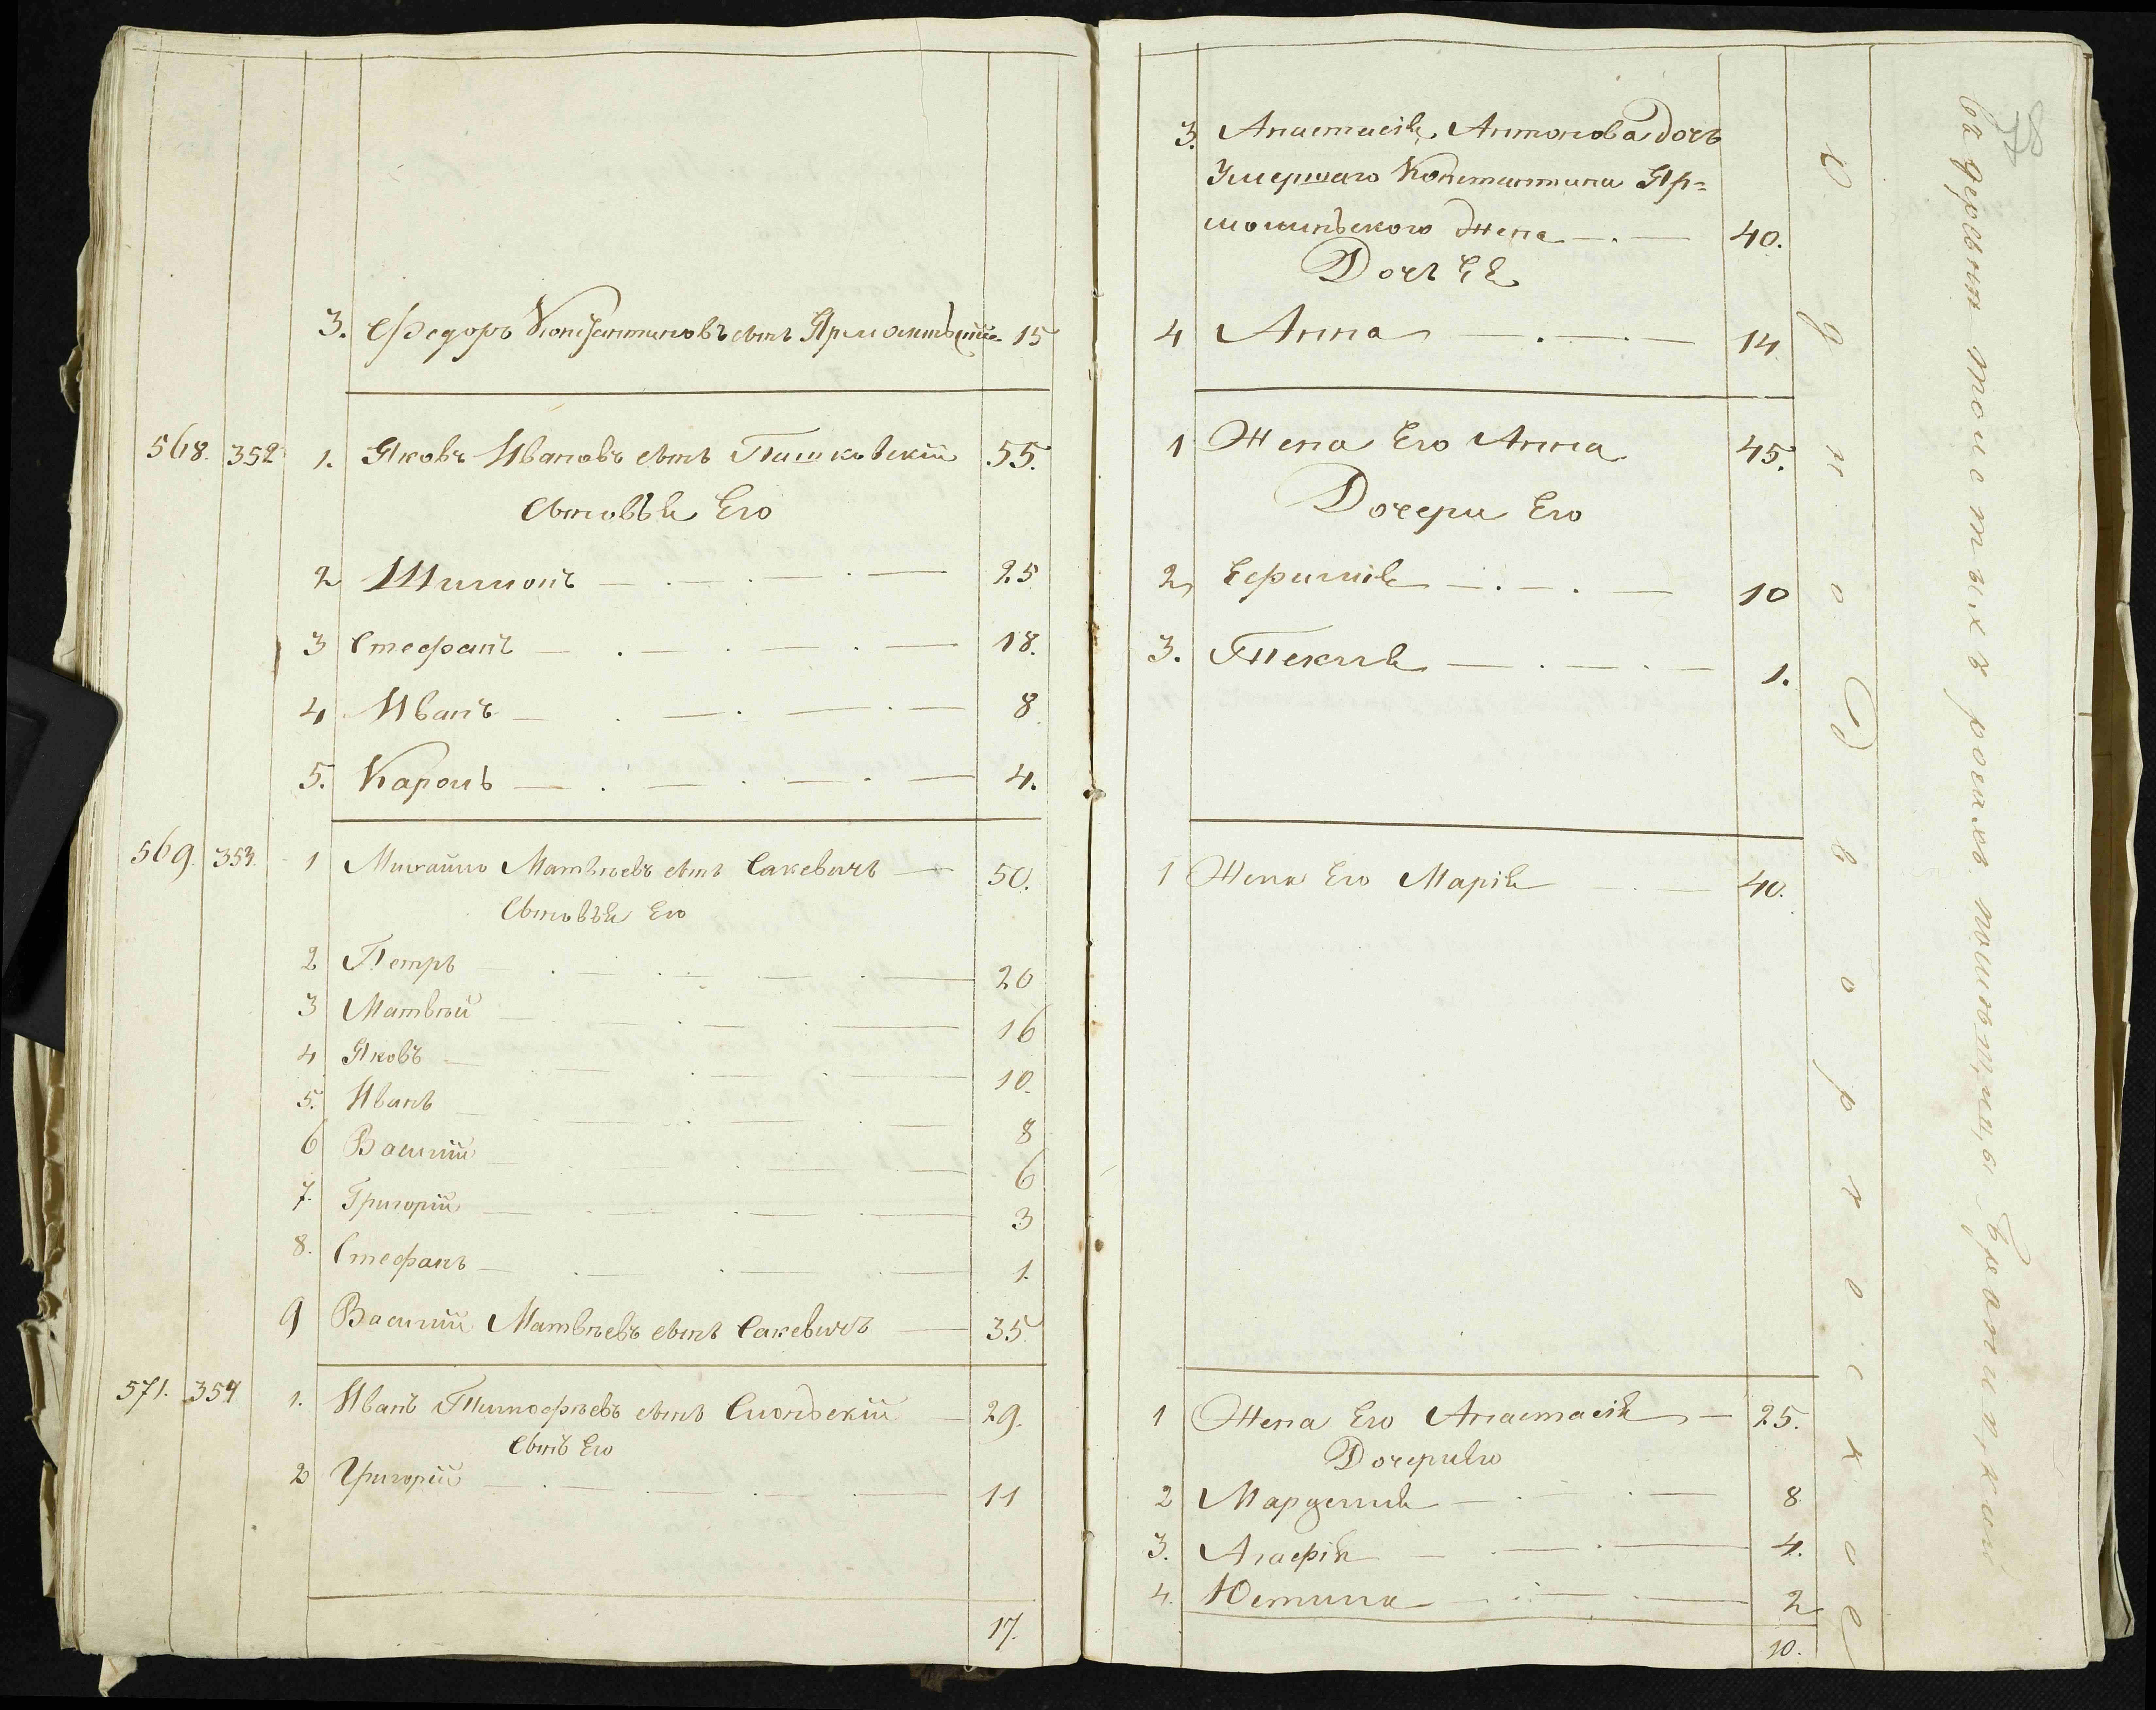 3. Федоръ Константиновъ сынъ 15
568. 352 1. Яковъ Ивановъ сынъ Пашковскій 55.
Сыновья Его
2 Шимонъ 25
3 Стефанъ 18.
4 Иванъ 8
5. Кароль 4.
569. 353. 1 Михайло Матвѣевъ сынъ Сакевичъ 50.
Сыновья Его
2 Петръ 20
3 Матвѣй 16
4 Яковъ 10.
5. Иванъ 8
6 Василій 6
7. Григорій 3
8. Стефанъ 1.
9 Василій Матвѣевъ сынъ Сакевичъ 35.
571. 354 1. Иванъ Тимофѣевъ сынъ 29.
Сынъ Его
2 Григорій 11
17.
78
3. Анастасія Антонова дочь
Умершаго Константина Яр=
молинскаго Жена 40.
Дочь Ея
4 Анна 14
1 Жена Его Анна 45.
Дочери Его
2 Ефимія 10
3. Текля 1.
1 Жена Его Марія 40.
1 Жена Его Анастасія 25.
Дочери Его
2 Марцеля 8
3. Агафія 4.
4. Юстина 2
10.
Однодворческое
въ деревни